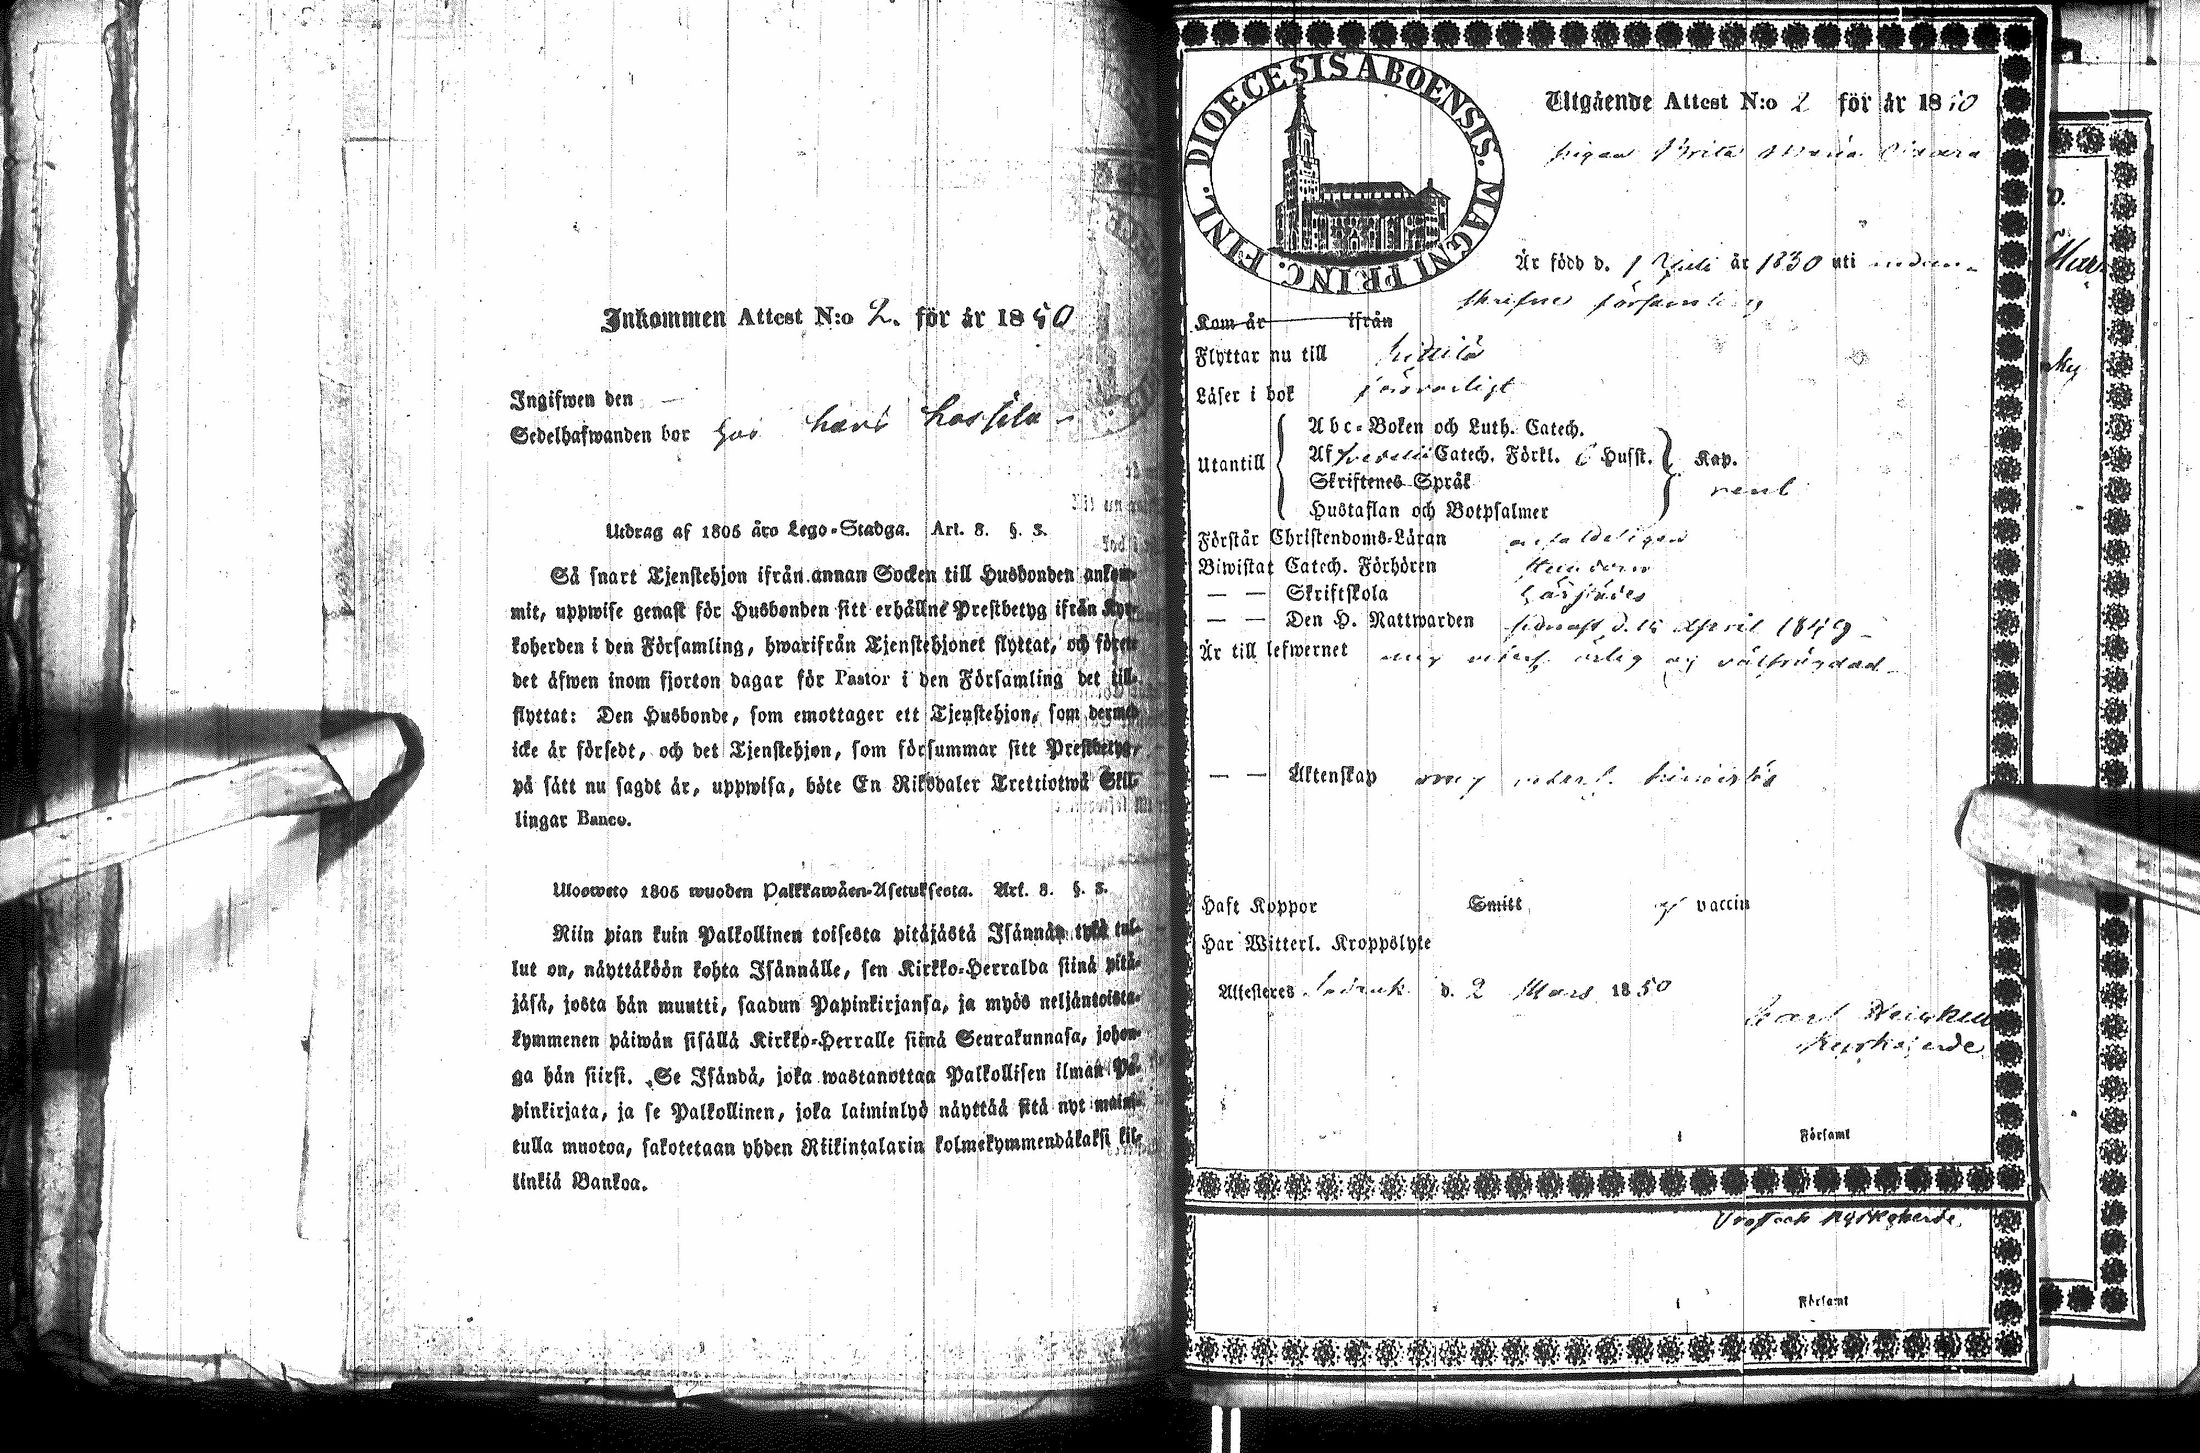 Inkommen Attest N:o 2. för år 1850
Ingifwen den —
Sedelhafwanden bor hos
Utdrag af 1805 års Lego-Stadga. Art. 8. §. 3.
Så snart Tjenstehjon ifrån annan Socken till Husbonden ankom-
mit, uppwise genast för Husbonden sitt erhållne Prestbetyg ifrån Kyr-
koherden i den Församling, hwarifrån Tjenstehjonet flyttat, och förete
det äfwen inom fjorton dagar för Pastor i den Församling det till-
flyttat: Den Husbonde, som emottager ett Tjenstehjon, som dermed
icke är försedt, och det Tjenstehjon, som försummar sitt Prestbetyg,
på sätt nu sagdt är, uppwisa, böte En Riksdaler Trettiotwå Skil-
lingar Banco.
Ulosweto 1805 wuoden Palkkawäen-Asetuksesta. Art. 8. §. 3.
Niin pian kuin Palkollinen toisesta pitäjästä Isännän tykö tul-
lut on, näyttäköön kohta Isännälle, sen Kirkko-Herralda siinä pitä-
jäsä, josta hän muutti, saadun Papinkirjansa, ja myös neljäntoista-
kymmenen päiwän sisällä Kirkko-Herralle siinä Seurakunnasa, johon-
ga hän siirsi. Se Isändä, joka wastanottaa Palkollisen ilman Pa-
pinkirjata, ja se Palkollinen, joka laiminlyö näyttää sitä nyt maini-
tulla muotoa, sakotetaan yhden Riikintalarin kolmekymmendäkaksi kil-
linkiä Bankoa.
DIOECESIS ABOENSIS. MAGNI PRINC. FINL.
Utgående Attest N:o 2 för år 1850
pigan Brita Maria
Är född d. 1 Juli år 1830 uti
församling
Kom år ifrån
Flyttar nu till
Läser i bok försvarligt
Abc-Boken och Luth. Catech.
Utantill Af Catech. Förkl. 6 Husst. Kap.
Skriftenes Språk rent
Hustaflan och Botpsalmer
Förstår Christendoms-Läran
Biwistat Catech. Förhören
— — Skriftskola
— — Den H. Nattwarden sednast d. 15 April 1849
Är till lefwernet ärlig och välfrägdad
— — Äktenskap hinderlös
Haft Koppor Smitt vaccin
Har Witterl. Kroppslyte
Attesteres d. 2 Mars 1850
Carl
Kyrkoherde
Församl
Prost och Kyrkoherde.
Församl